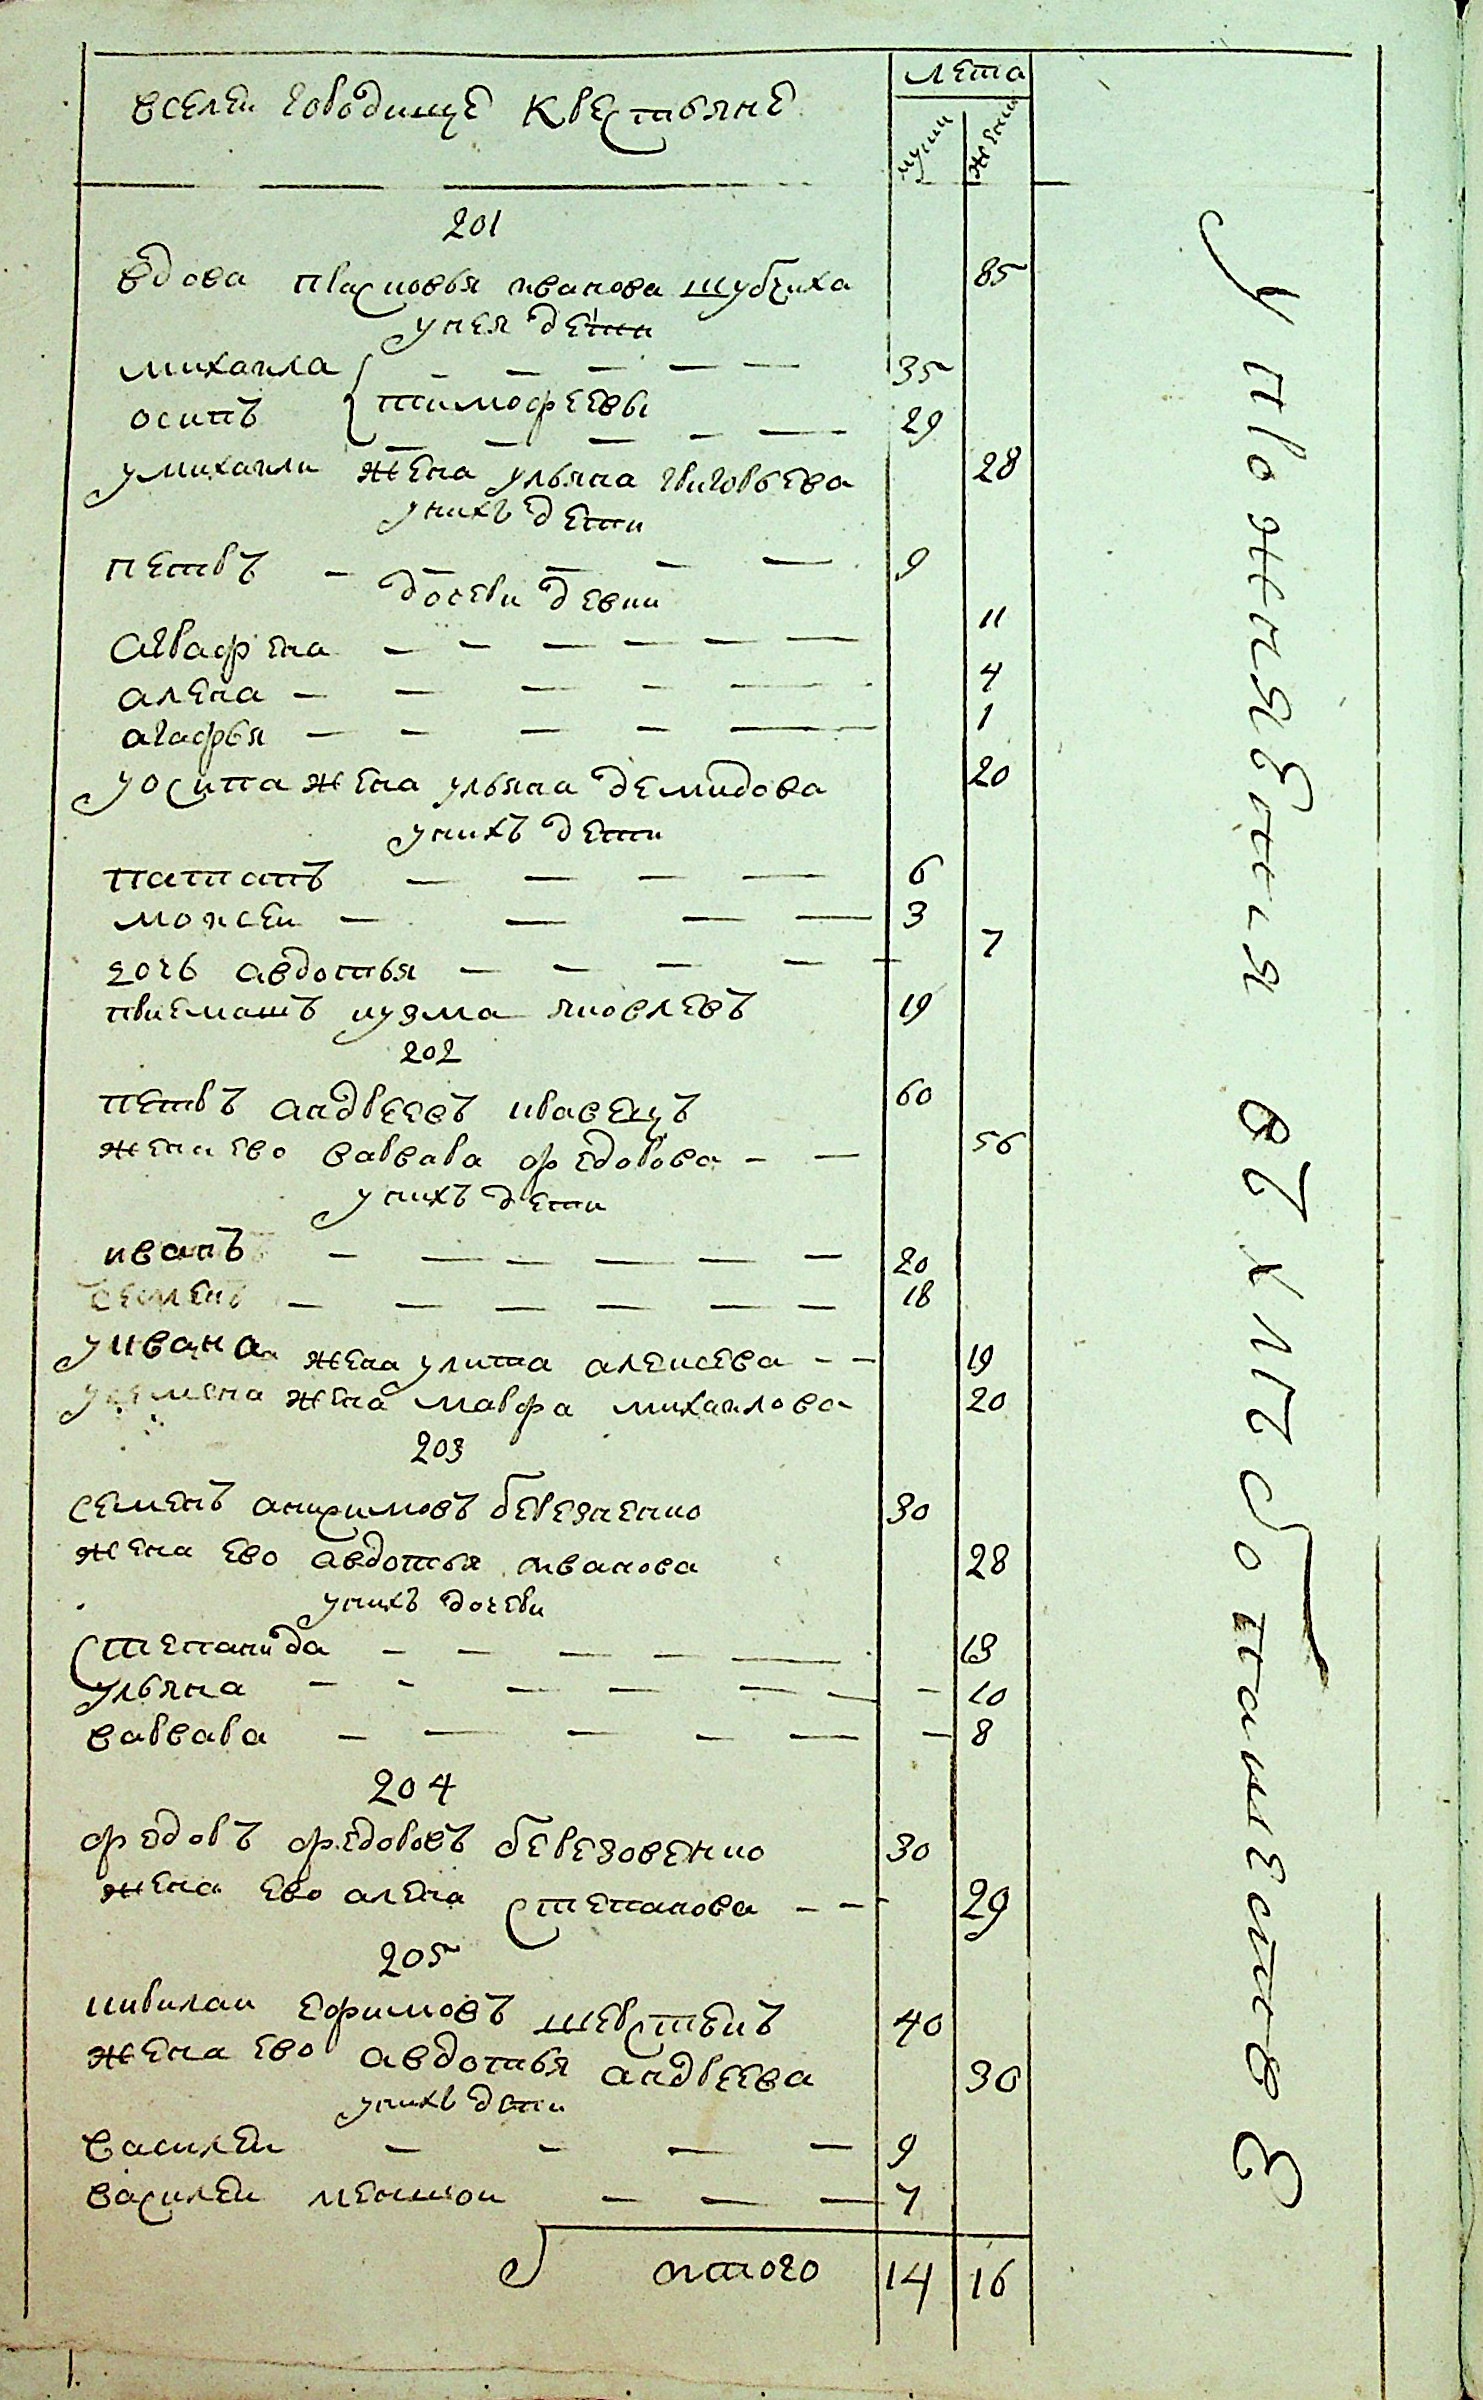 лета
вселеи городище крестьяне
мужи женш
201
вдова прасковья иванова шубчиха 85
унея дети
михаила 35
тимофеевы
осипъ 29
умихаили жена ульяна григорьева 28
унихъ дети
петръ 9
дочери девки
аграфена 11
алена 4
агафья 1
уосипа жена ульяна демидова 20
унихъ дети
патапъ 6
моисеи 3
дочь авдотья 7
приемашъ кузма яковлевъ 19
202
петръ андреевъ кравецъ 60
жена ево варвара федорова 56
унихъ дети
иванъ 20
семенъ 18
уивана жена улита алексева 19
усемена жена мавра михаилова 20
203
семенъ анисимовъ березненко 30
жена ево авдотья иванова 28
унихъ дочери
степанида 13
ульяна 10
варвара 8
204
федоръ федоровъ березовенко 30
жена ево алена степанова 29
205
кирилаи ефимовъ шерстенъ 40
жена ево авдотья андреева 30
унихъ дети
василеи 9
василеи меншои 7
итого 14 16